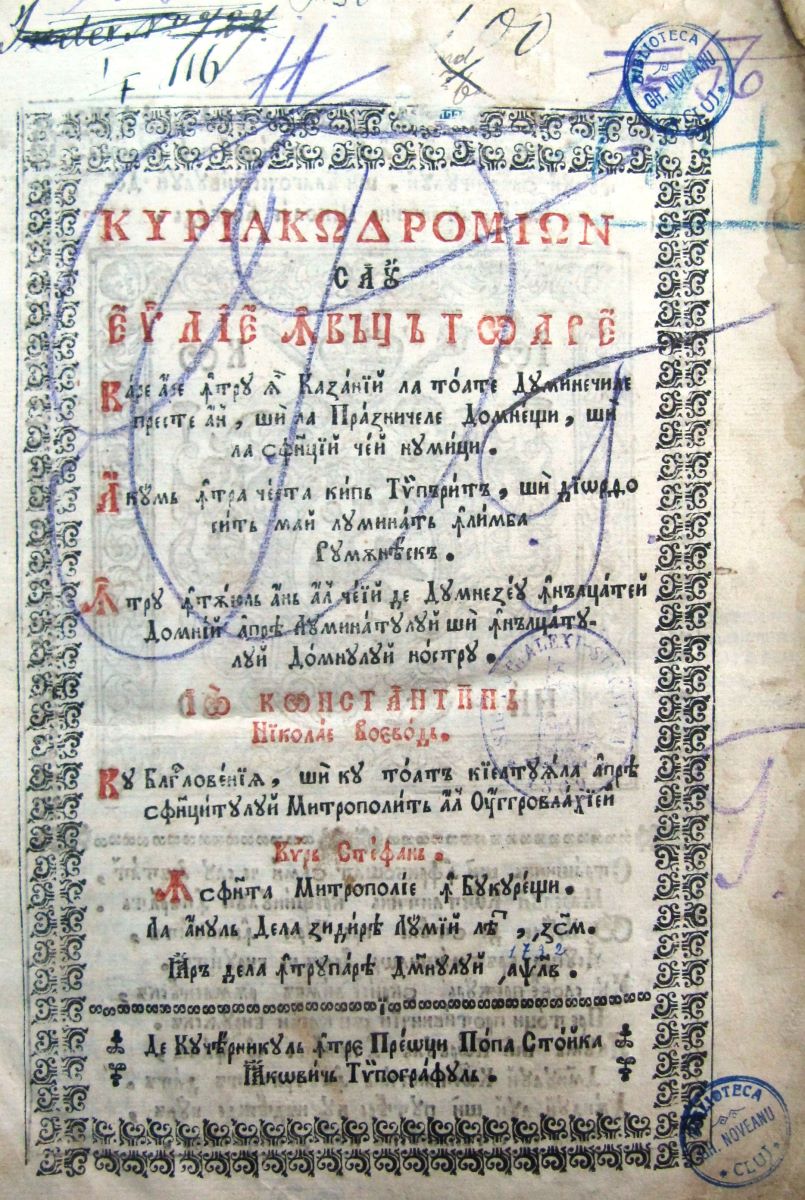 116
F
BIBLIOTECA
GH. NOVEANU
CLUJ
КѴРІАКѠДРОМІѠН
САꙊ
ЕѴ҃ЛІЕ ꙞВЪЦЪТѠАРЕ
Каре аре ꙟтру ѧ Казанїй ла тоате Думинечиле
престе ан, ши ла Празничеле Домнещи, ши
ла сфинцїй чей нумици.
Акꙋмь ꙟтра честа кипь Тѵпъритъ, ши дїѡрѳо
ситъ май луминатъ ꙟлимба
Румѫнѣскъ.
Ꙟтру ꙟтѫюль ань ал чеїй де Думнезеу ꙟнълцатей
Домнїй апрѣ Луминатулуй ши ꙟнълцату-
луй Домнулуй ностру.
ІѠ КѠНСТАНТІНЬ
Нїколае Воевод.
Ку Благ҃ловенїѧ, ши ку тоатъ кїелтуѧла апрѣ
сфинцитулуй Митрополить ал Оуггровлахїей
Кѵрь Стефань.
Ꙟ сфинта Митрополіе ꙟ Букурещи.
Ла ануль Дела зидирѣ Лумїй лѣт, ҂зсм.
Ꙗръ дела ꙟтрупарѣ Дмнулуй ҂аѱлв.
1732
De Кучерникуль ꙟтре Преѡци Попа Стойка
Ꙗкѡвичь Тѵпографуль.
BIBLIOTECA
GH. NOVEANU
CLUJ